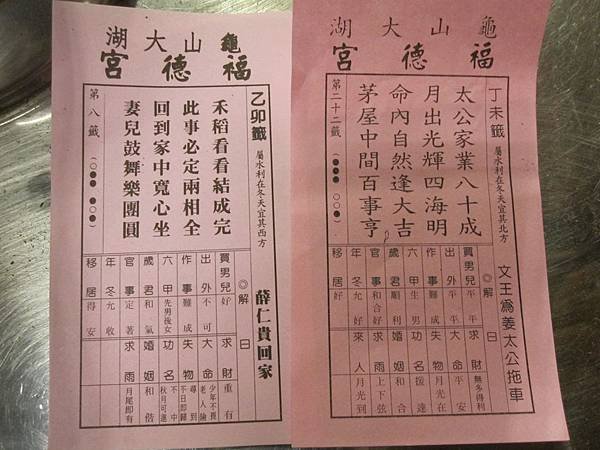 龜山大湖
福德宮
乙卯籤 屬水利在冬天宜其西方
禾稻看看結成完
此事必定兩相全
回到家中寬心坐
妻兒鼓舞樂團圓
第八籤
薛仁貴回家
◎解曰
買男兒 好 求財 重有
出外 不可 大命 少年不畏老人險
作事 難成 失物 尋到不日即歸
六甲 先男後女 功名 不中秋月可進
歲君 和氣 婚姻 和偕
官事 定著 求雨 月尾即有
年冬 允收
移居 得安
龜山大湖
福德宮
丁未籤 屬水利在冬天宜其北方
太公家業八十成
月出光輝四海明
命內自然逢大吉
茅屋中間百事亨
第二十二籤
文王為姜太公拖車
◎解曰
買男兒 平平 求財 無多得利
出外 平平 大命 平安
作事 難成 失物 月光在
六甲 生男 功名 援達
歲君 順利 婚姻 和合
官事 和合好 求雨 上下弦
年冬 好 來人 月光到
移居 好